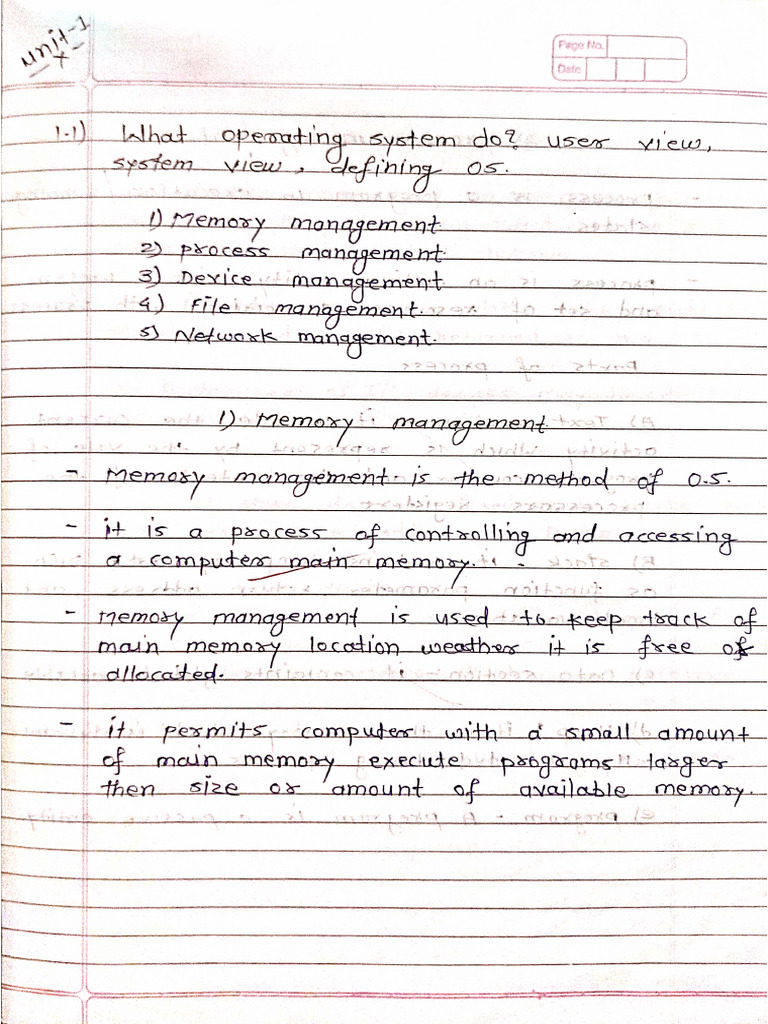 unit-1
x
Page No.
Date
1.1) What operating system do? user view,
system view, defining OS.
1) Memory management
2) process management
3) Device management
4) File management.
5) Network management.
1) Memory management
- Memory management is the method of O.S.
- it is a process of controlling and accessing
a computer main memory.
- Memory management is used to keep track of
main memory location weather it is free or
allocated.
- it permits computer with a small amount
of main memory execute programs larger
then size or amount of available memory.